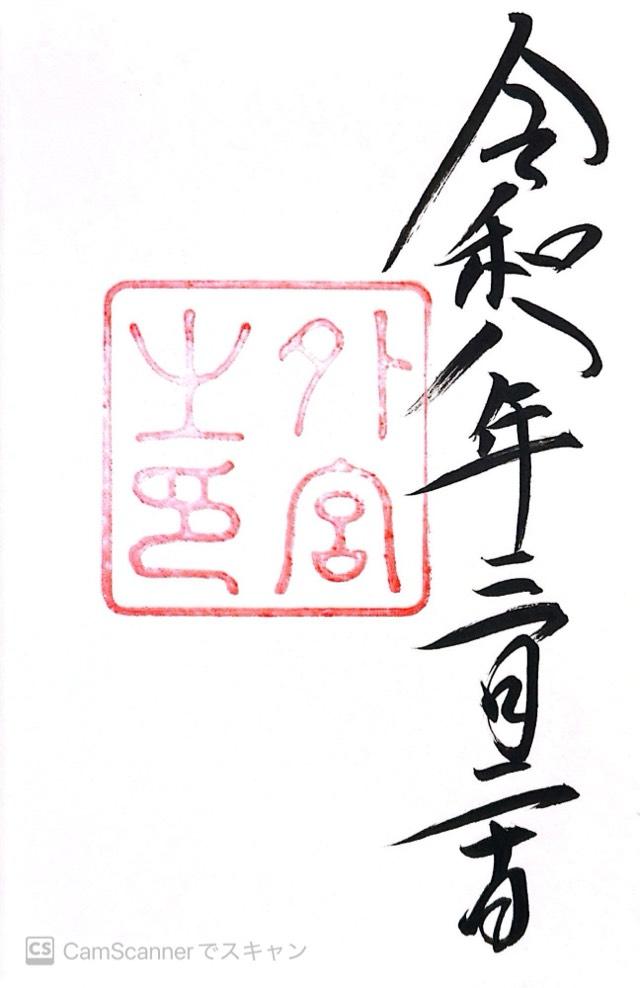 令和八年三月二十日
外宮
之印
CS CamScannerでスキャン